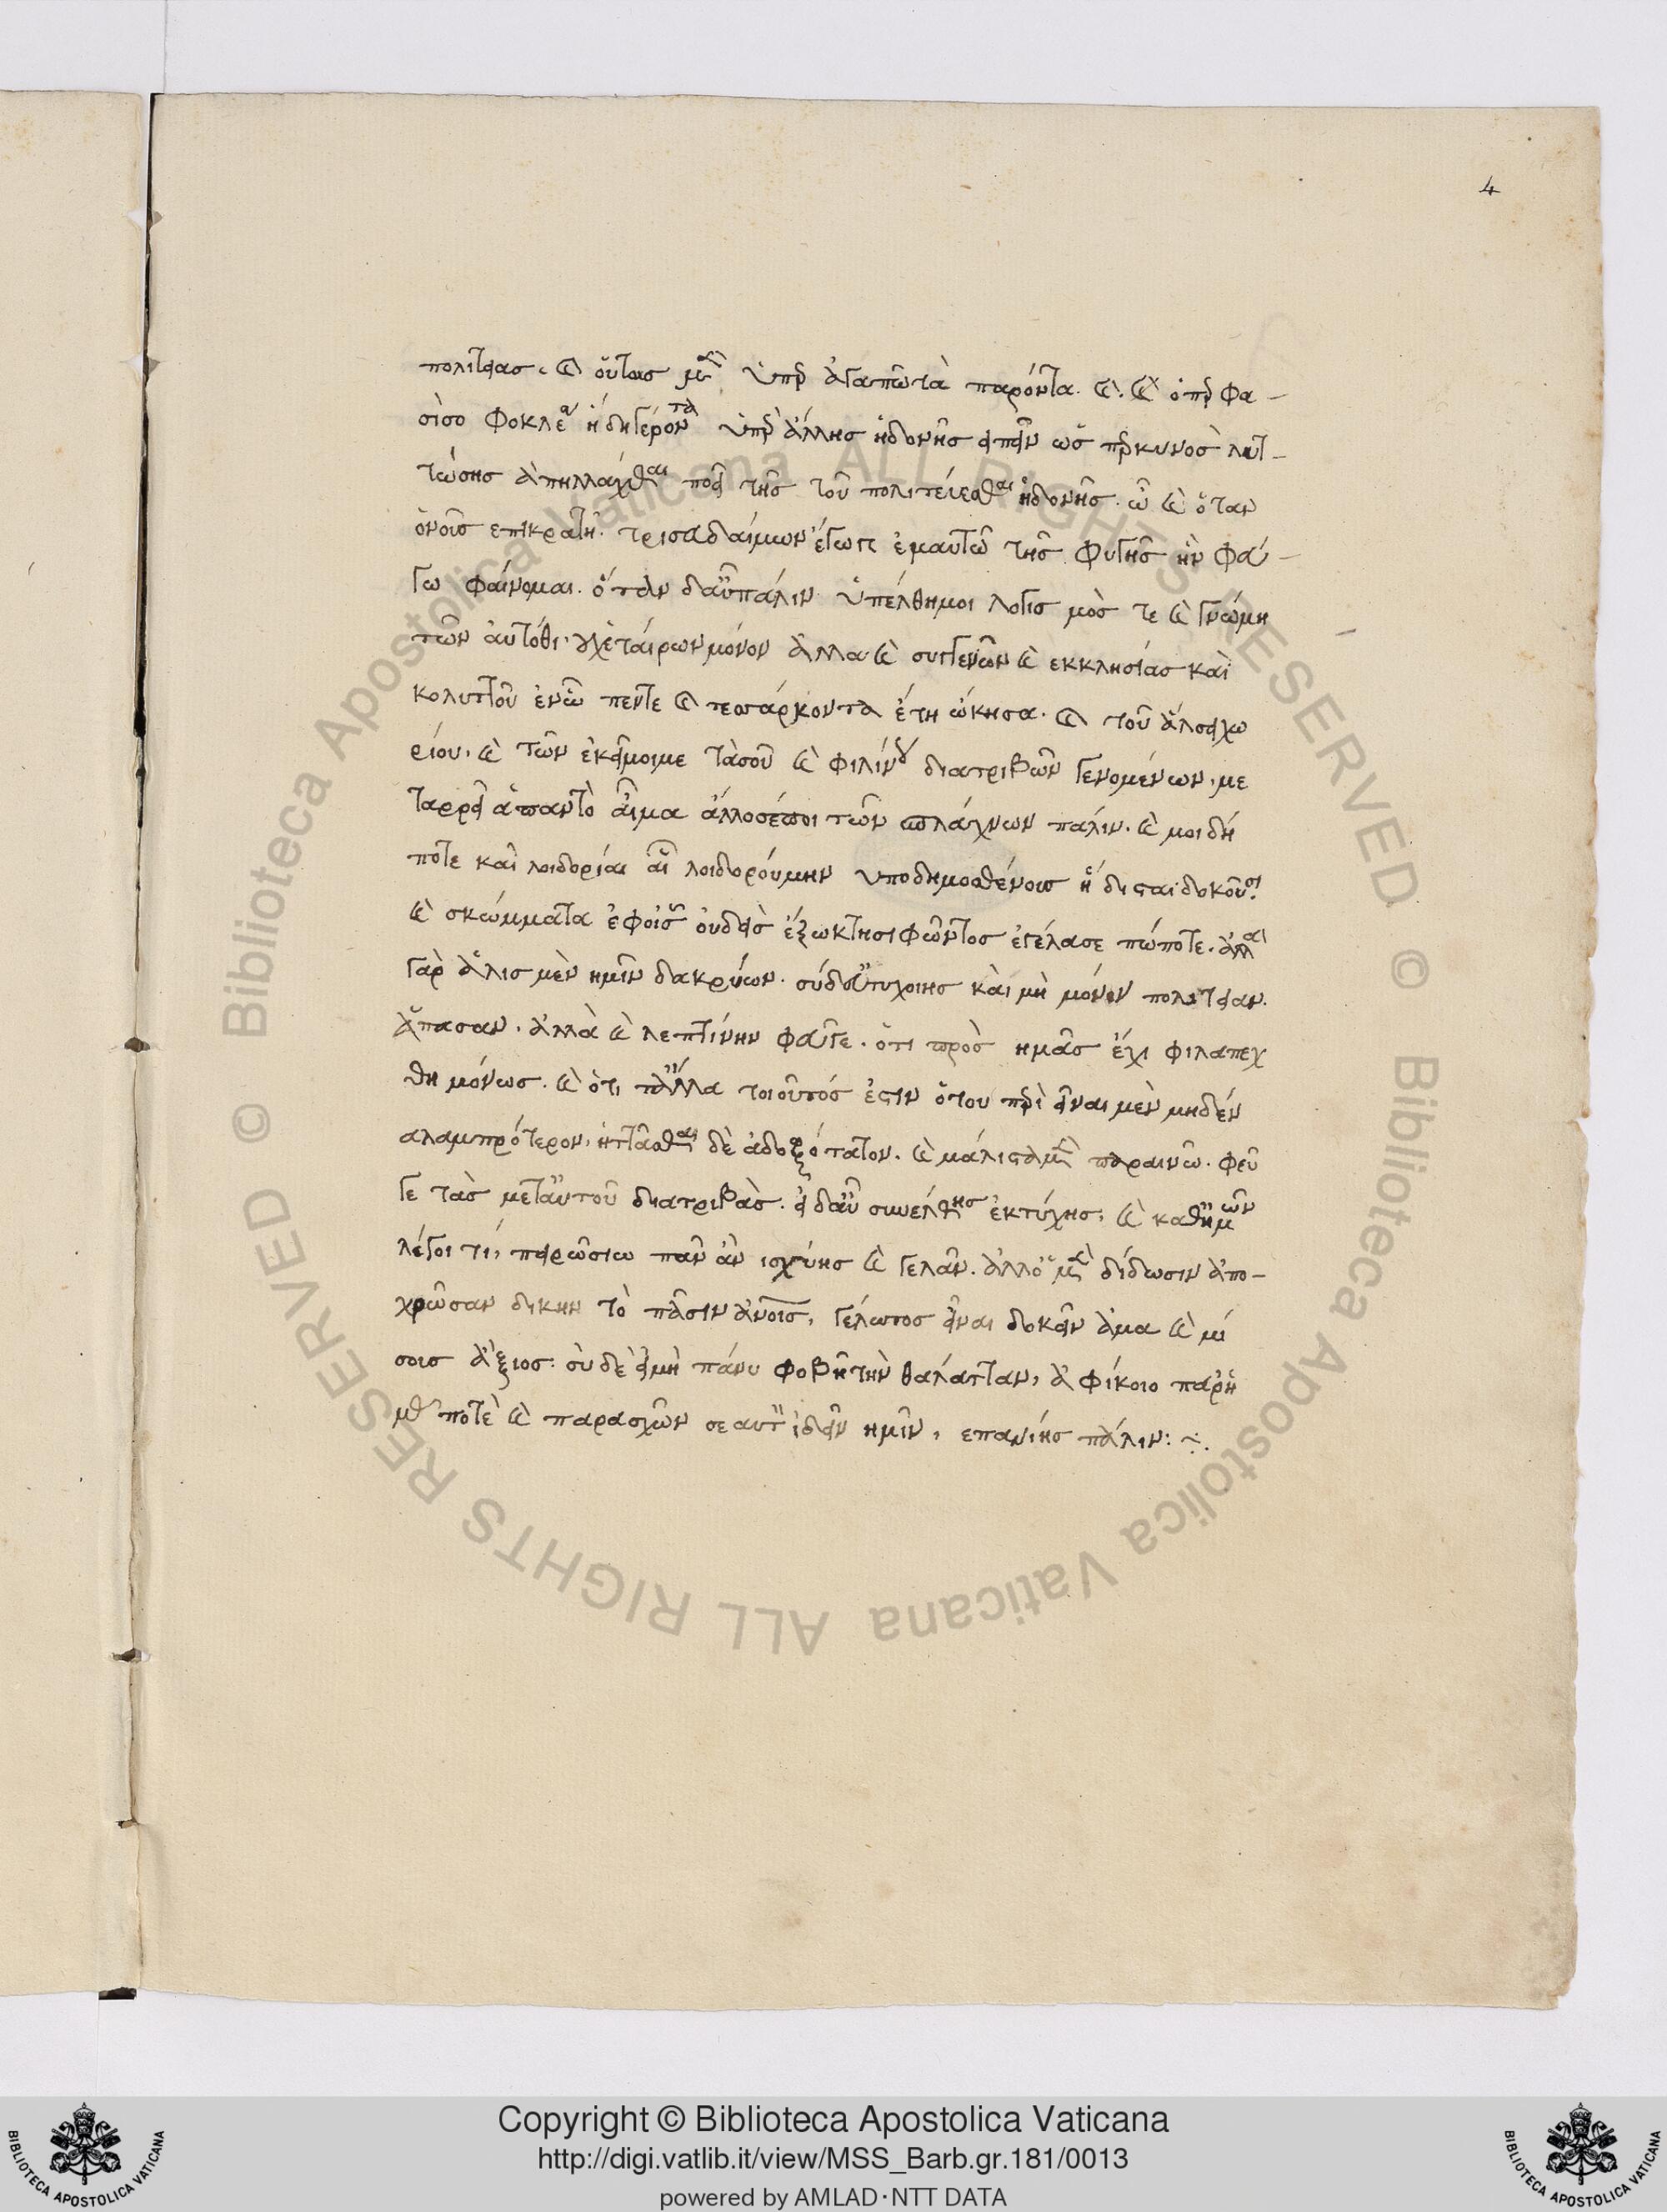 4
πολιτείας. καὶ οὕτως μὲν ὑπὲρ ἀγαπῶ τὰ παρόντα. καὶ. καὶ ὅπερ φα-
σὶ σοφοκλέα ἤδη γέροντα ὑπὲρ ἄλλης ἡδονῆς εἰπεῖν ὡς περ κυνὸς λυτ-
τώσης ἀπηλλάχθαι ποτὲ τῆς τοῦ πολιτεύεσθαι ἡδονῆς. ὦ καὶ ὅταν
ὁ νοῦς επικρατῆ. τρισαδαίμων ἔγωγε ἐμαυτῶ τῆς φυγῆς ἣν φεύ-
γω φαίνομαι. ὅταν δ' αὖ πάλιν ὑπέλθη μοι λογισμὸς τε καὶ γνώμη
τῶν ἀυτόθι. οὐχ ἑταίρων μόνον ἀλλα καὶ συγγενῶν καὶ εκκλησίας καὶ
κολυττοῦ ἐν ὧ πεντε καὶ τεσσάρκοντα ἔτη ὤκησα. καὶ τοῦ ἄλσει χω
ρίου. καὶ τῶν ἐκεῖ μοι με τὰ σοῦ καὶ φιλίνου διατριβῶν γενομένων. με
ταρρεῖ ἅπαν τὸ αἷμα ἄλλοσέ ποι τῶν σπλάχνων πάλιν. καὶ μοι δή
ποτε καὶ λοιδορίαι αἷ λοιδορούμην υπο δημοσθένους ἥδισται δοκοῦσι
καὶ σκώμματα ἐφ οἷς οὐδεὶς ἔξω κτησιφῶντος ἐγέλασε πώποτε. ἀλλαὶ
γαρ ἅλις μὲν ημῖν δακρύων. σύ δ' εὐτυχοίης καὶ μὴ μόνον πολιτείαν
ἅπασαν. ἀλλὰ καὶ λεπτίνην φεῦγε. ὅτι πρὸς ημᾶς ἔχι φιλαπεχ
θημόνως. καὶ ὅτι τἆλλα τοιοῦτός ἐστιν ὅτου περὶ εἶναι μὲν μηδέν
αλαμπρότερον. ἡττᾶσθαι δὲ ἀδοξότατον. καὶ μάλιστα μὲν παραινῶ. φεῦ
γε τὰς μετ αὐτοῦ διατριβὰς. εἰ δ' αὖ συνέλθης ἐκ τύχης. καὶ καθ ημῶν
λέγοι τί, πειρῶ σιω πᾶν ἂν ισχύης καὶ γελᾶν. ἀλλ' ὁ μὲν δίδωσιν ἀπο-
χρῶσαν δικην τὸ πᾶσιν ἀνοις, γέλωτος εἶναι δοκεῖν ἅμα καὶ μί
σους ἄξιος: σὺ δὲ εἰ μὴ πάνυ φοβῆ τὴν θαλάτταν, ἀφίκοιο παρ' ἡ
μᾶς ποτὲ καὶ παρασχῶν σεαυτὸν ἰδεῖν ημῖν, επανίης πάλιν: ~.
Copyright © Biblioteca Apostolica Vaticana
http://digi.vatlib.it/view/MSS_Barb.gr.181/0013
powered by AMLAD·NTT DATA
BIBLIOTECA APOSTOLICA VATICANA
BIBLIOTECA APOSTOLICA VATICANA
© Biblioteca Apostolica Vaticana ALL RIGHTS RESERVED © Biblioteca Apostolica Vaticana ALL RIGHTS RESERVED